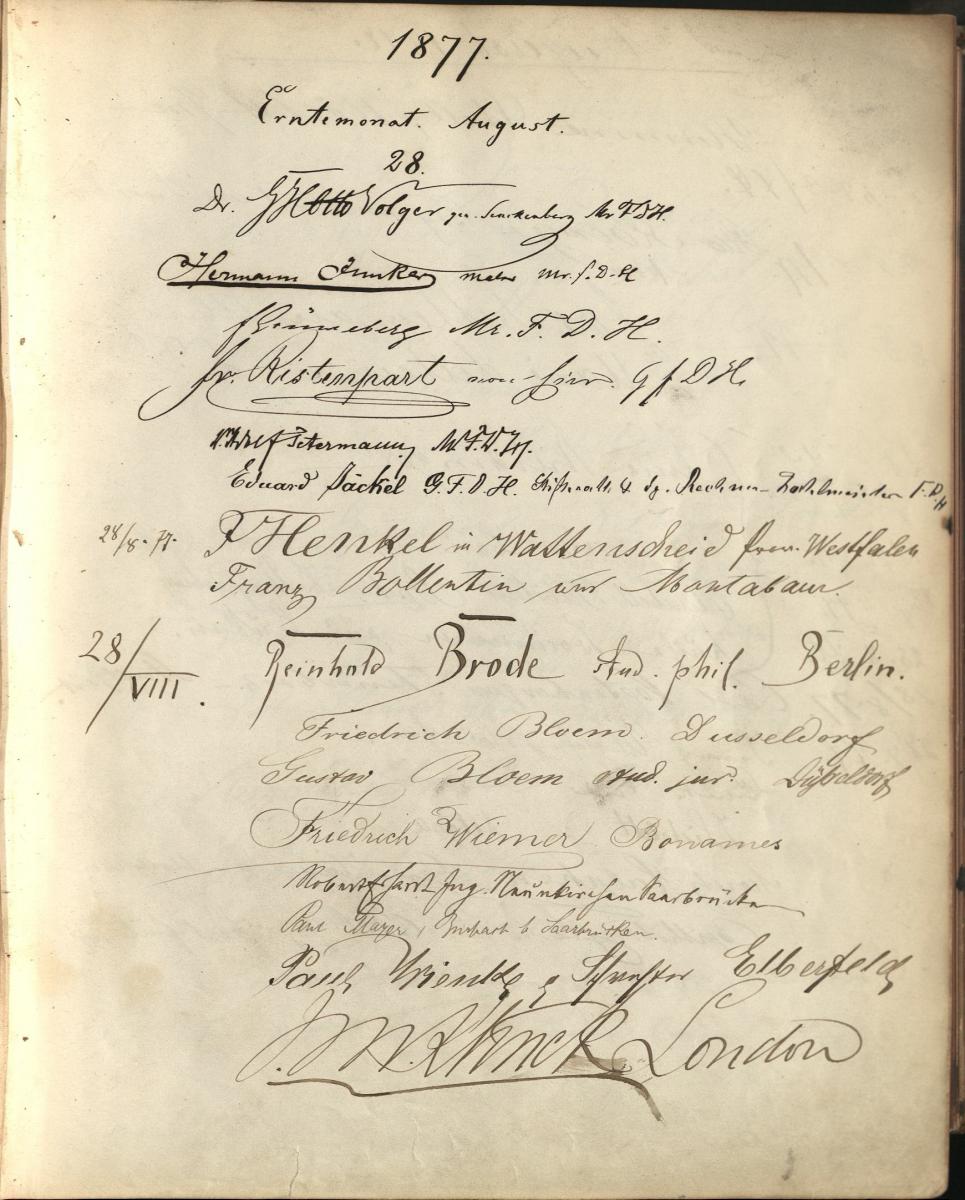 1877.
Erntemonat. August.
28.
Dr. GHOtto Volger gen. Senckenberg Mr F D H.
Hermann Junker Maler Mr. f. D. H
Mr. F. D. H.
Fr. Ristenpart G f D H.
Petermann M. F. D. H.
Eduard Jäckel G. F. D. H. F. D. H
28/8. 77. F Henkel in Wattenscheid Prov. Westfalen
Franz Bollentin aus Montabaur.
28/VIII. Reinhold Brode stud. phil. Berlin.
Friedrich Bloem. Dusseldorf
Gustav Bloem stud. jur. Düsseldorf
Friedrich Wiemer Bonames
Robert Ing. Neunkirchen Saarbrücken
Paul Mayer, Burbach b Saarbrücken.
Paul & Schwester Elberfeld
London